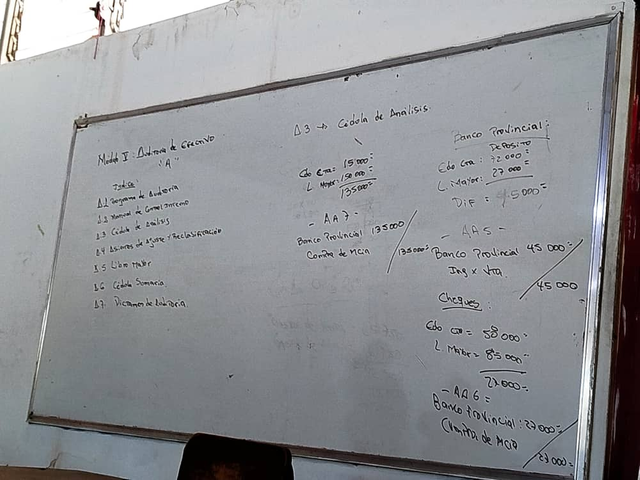 Modulo I: Auditoria de Efectivo
"A"
Indice:
A.1 Programa de Auditoria
A.2 Manual de Control Interno
A.3 Cédula de Análisis
A.4 Asientos de Ajuste y Reclasificación
A.5 Libro Mayor
A.6 Cédula Sumaria
A.7 Dictamen de Auditoria
A.3 → Cédula de Análisis.
Edo Cta: 15 000=
L Mayor: 150 000=
135000=
- AA7 -
Banco Provincial 135000
Compra de Mcia 135000=
Banco Provincial:
Deposito
Edo Cta: 72 000=
L. Mayor: 27 000=
Dif = 45 000=
- AA5 -
Banco Provincial 45 000=
Ing x Vta 45 000
Cheques:
Edo Cta = 58 000=
L Mayor = 85 000=
27 000=
- AA6 =
Banco Provincial: 27 000=
Compra de Mcia 27 000=